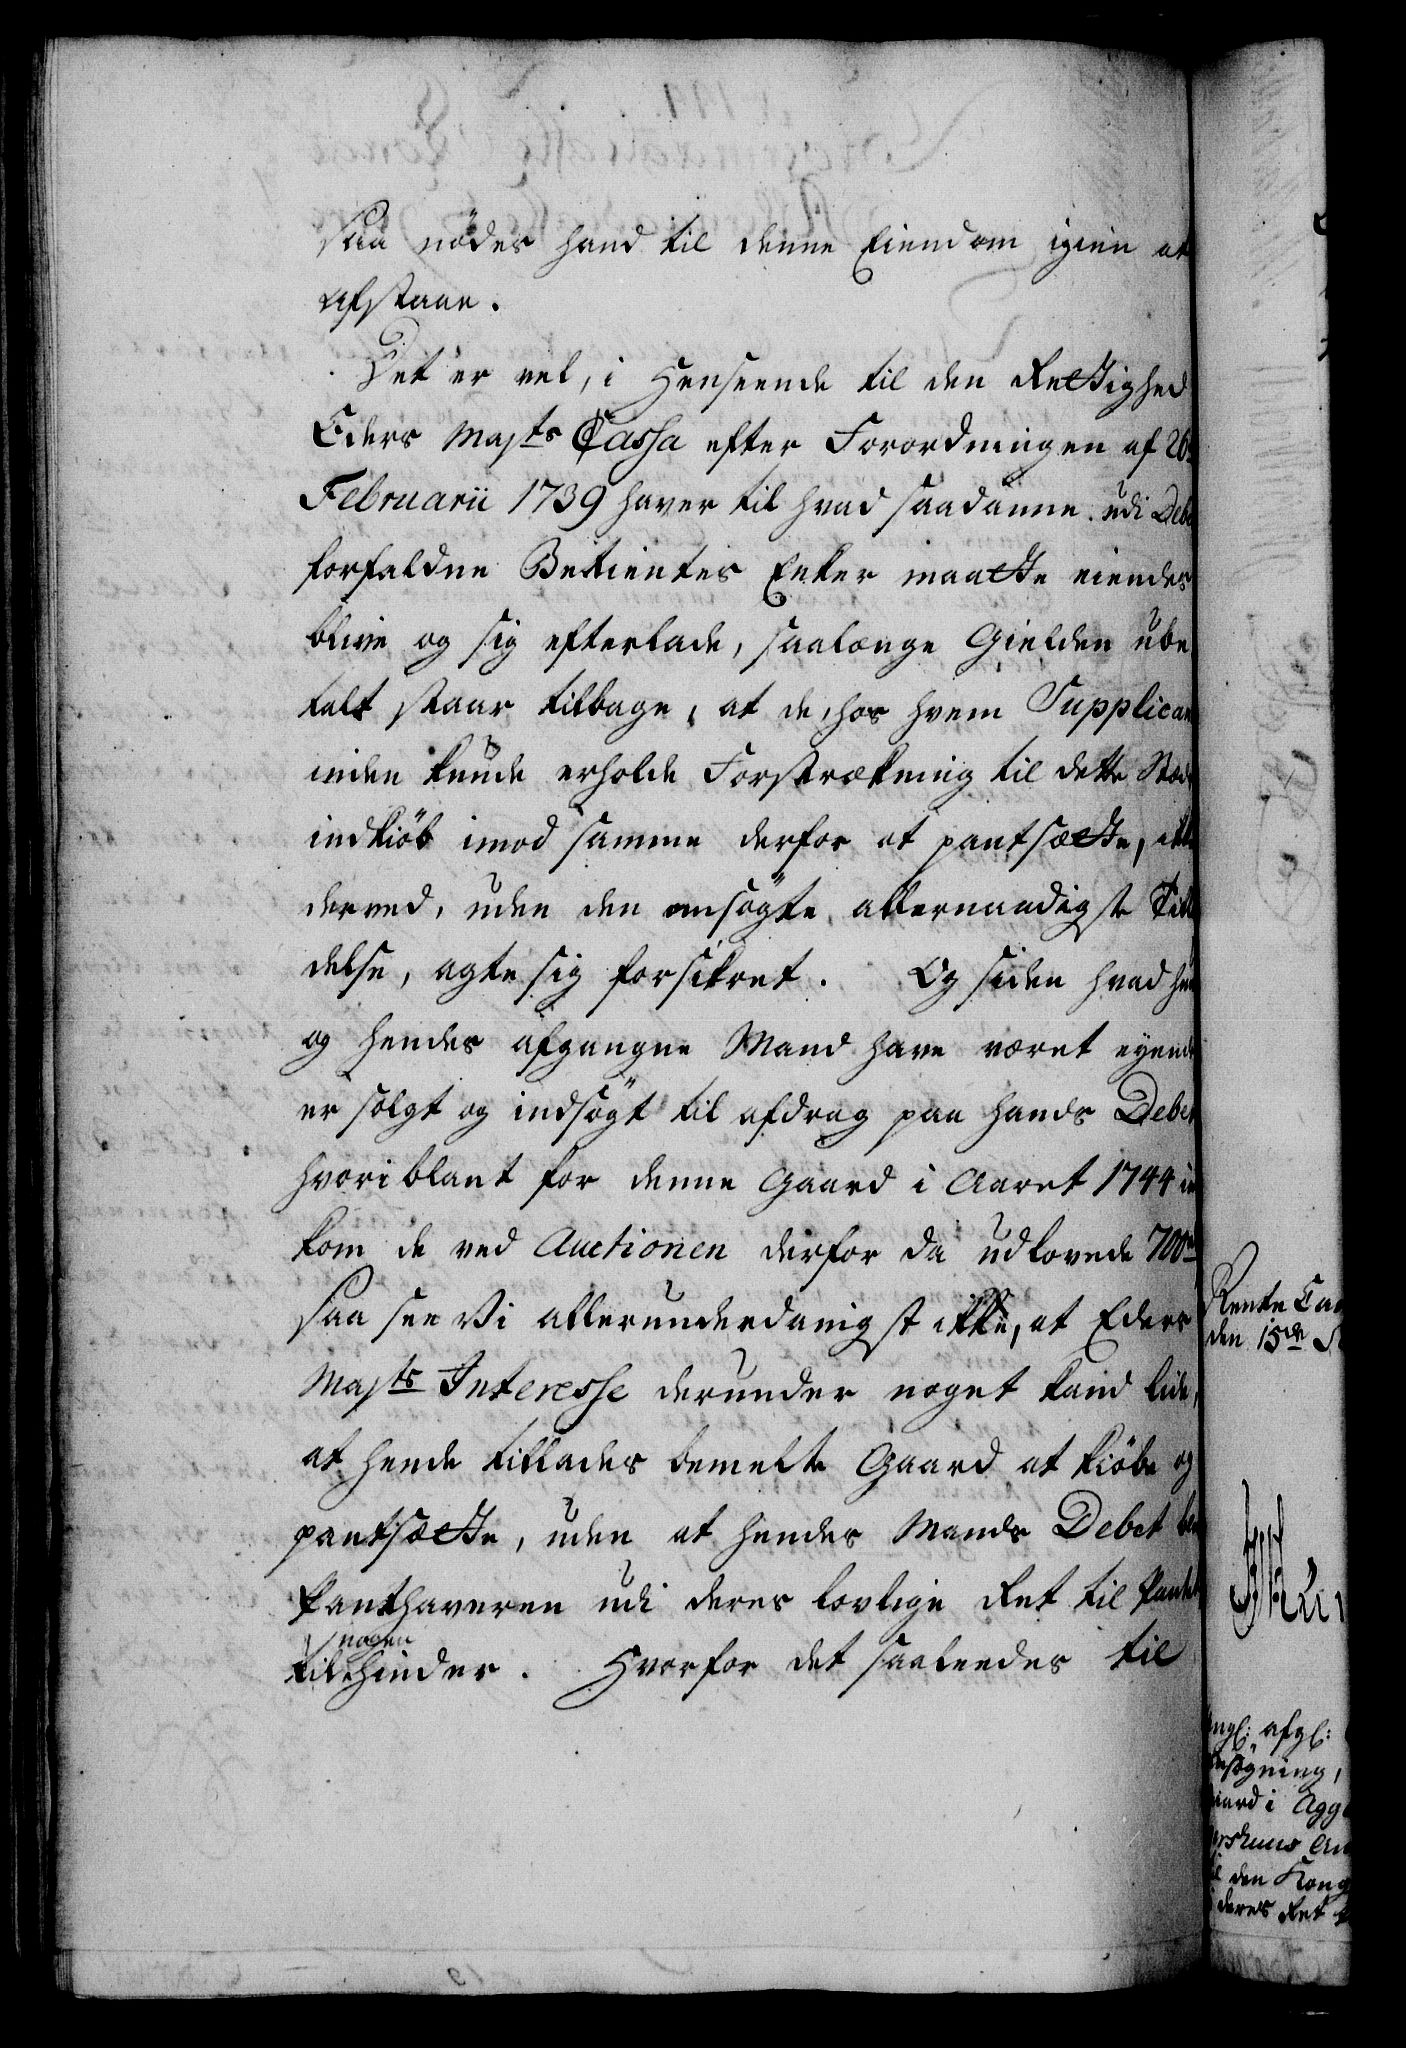 saa nödes hand til denne Eiendom igien at
afstaae.
Det er vel, i Henseende til den Rettighed
Eders Majts Cassa efter Forordningen af 26
Februarii 1739 haver til hvad saadanne udi Debet
forfaldne Betientes Enker maatte eiendes
blive og sig efterlade, saalænge Gielden ube
talt staar tilbage, at de, hos hvem Supplican
inden kunde erholde Forstrækning til dette Stæds
indkiöb imod samme derfor at pantsætte, ikke
derved, uden den ansögte allernaadigste Tilla
delse, agte sig forsikret. Og siden hvad hun
og hendes afgangne Mand have været eyende
er solgt og indsögt til afdrag paa hands Debet
hvoriblant for denne Gaard i Aaret 1744 ind
kom de ved Auctionen derfor da udlovede 700 rd
Saa see Vi allerunderdanigst ikke, at Eders
Majts Interesse derunder noget kand lide,
at hende tillades bemelte Gaard at kiöbe og
pantsætte, uden at hendes Mands Debet kand
Panthaveren udi deres lovlige Ret til Pantet
nogen
til Hinder. Hvorfor det saaledes til
Rente Cam
den 15de
angl: afgl:
Ansögning,
Gaard i Agge
ershuus Am
til den Kong
i deres Ret